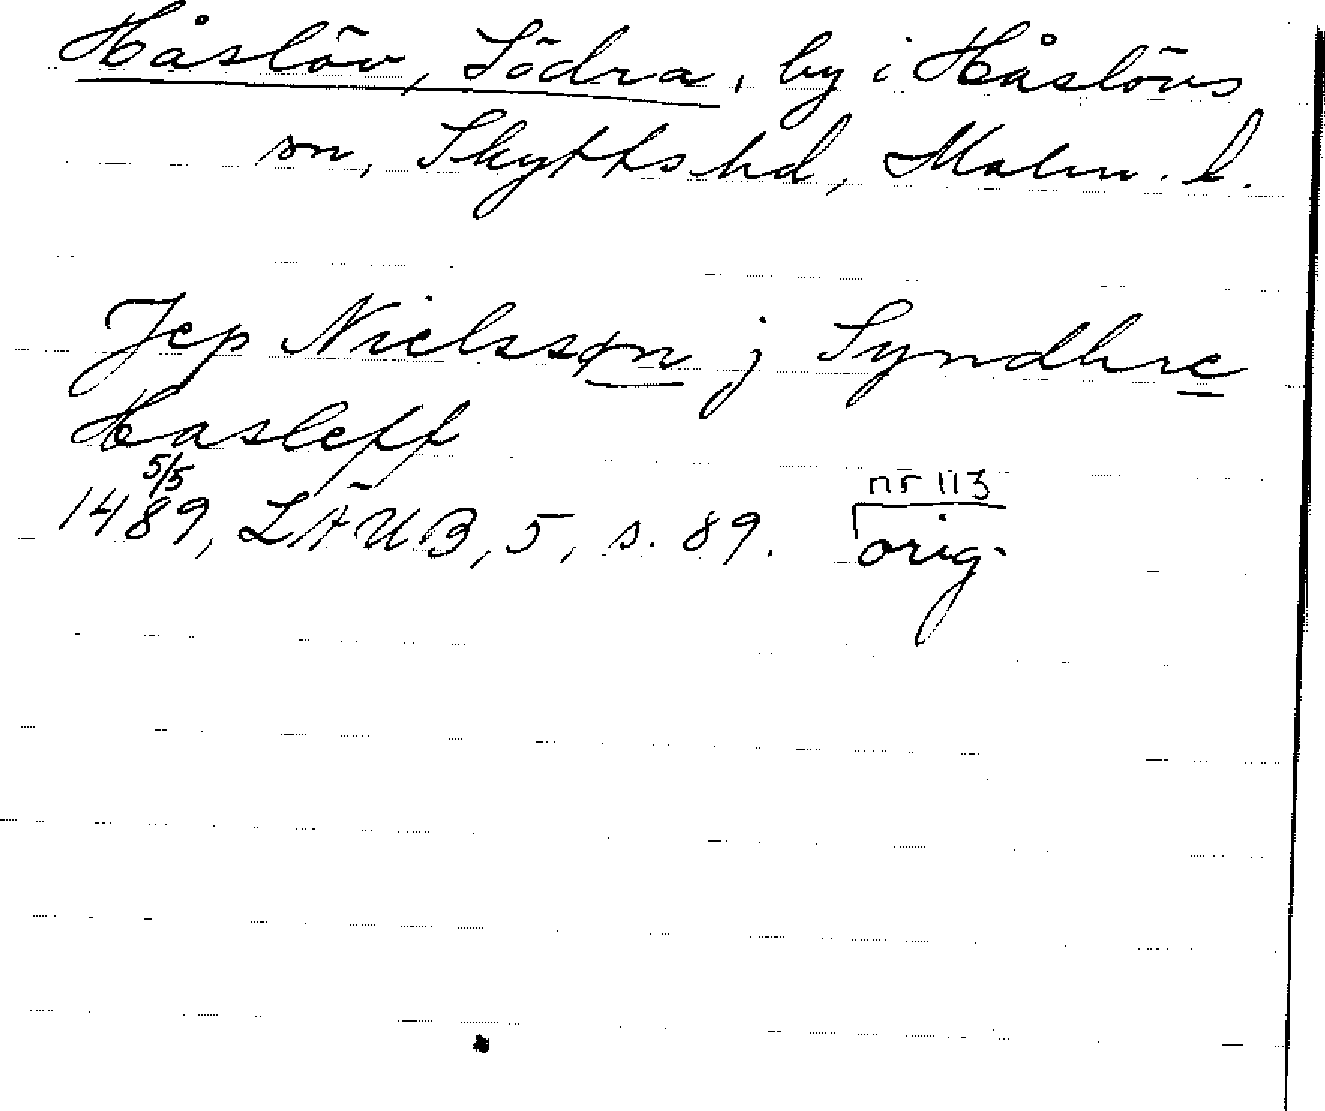 Håslöv, Södra, by i Håslövs
sn, Skytts hd, Malm. l.
Jep Nielssøn j Syndhre
Hasleff
5/5
1489, LÄUB, 5, s. 89.
nr 113
orig.